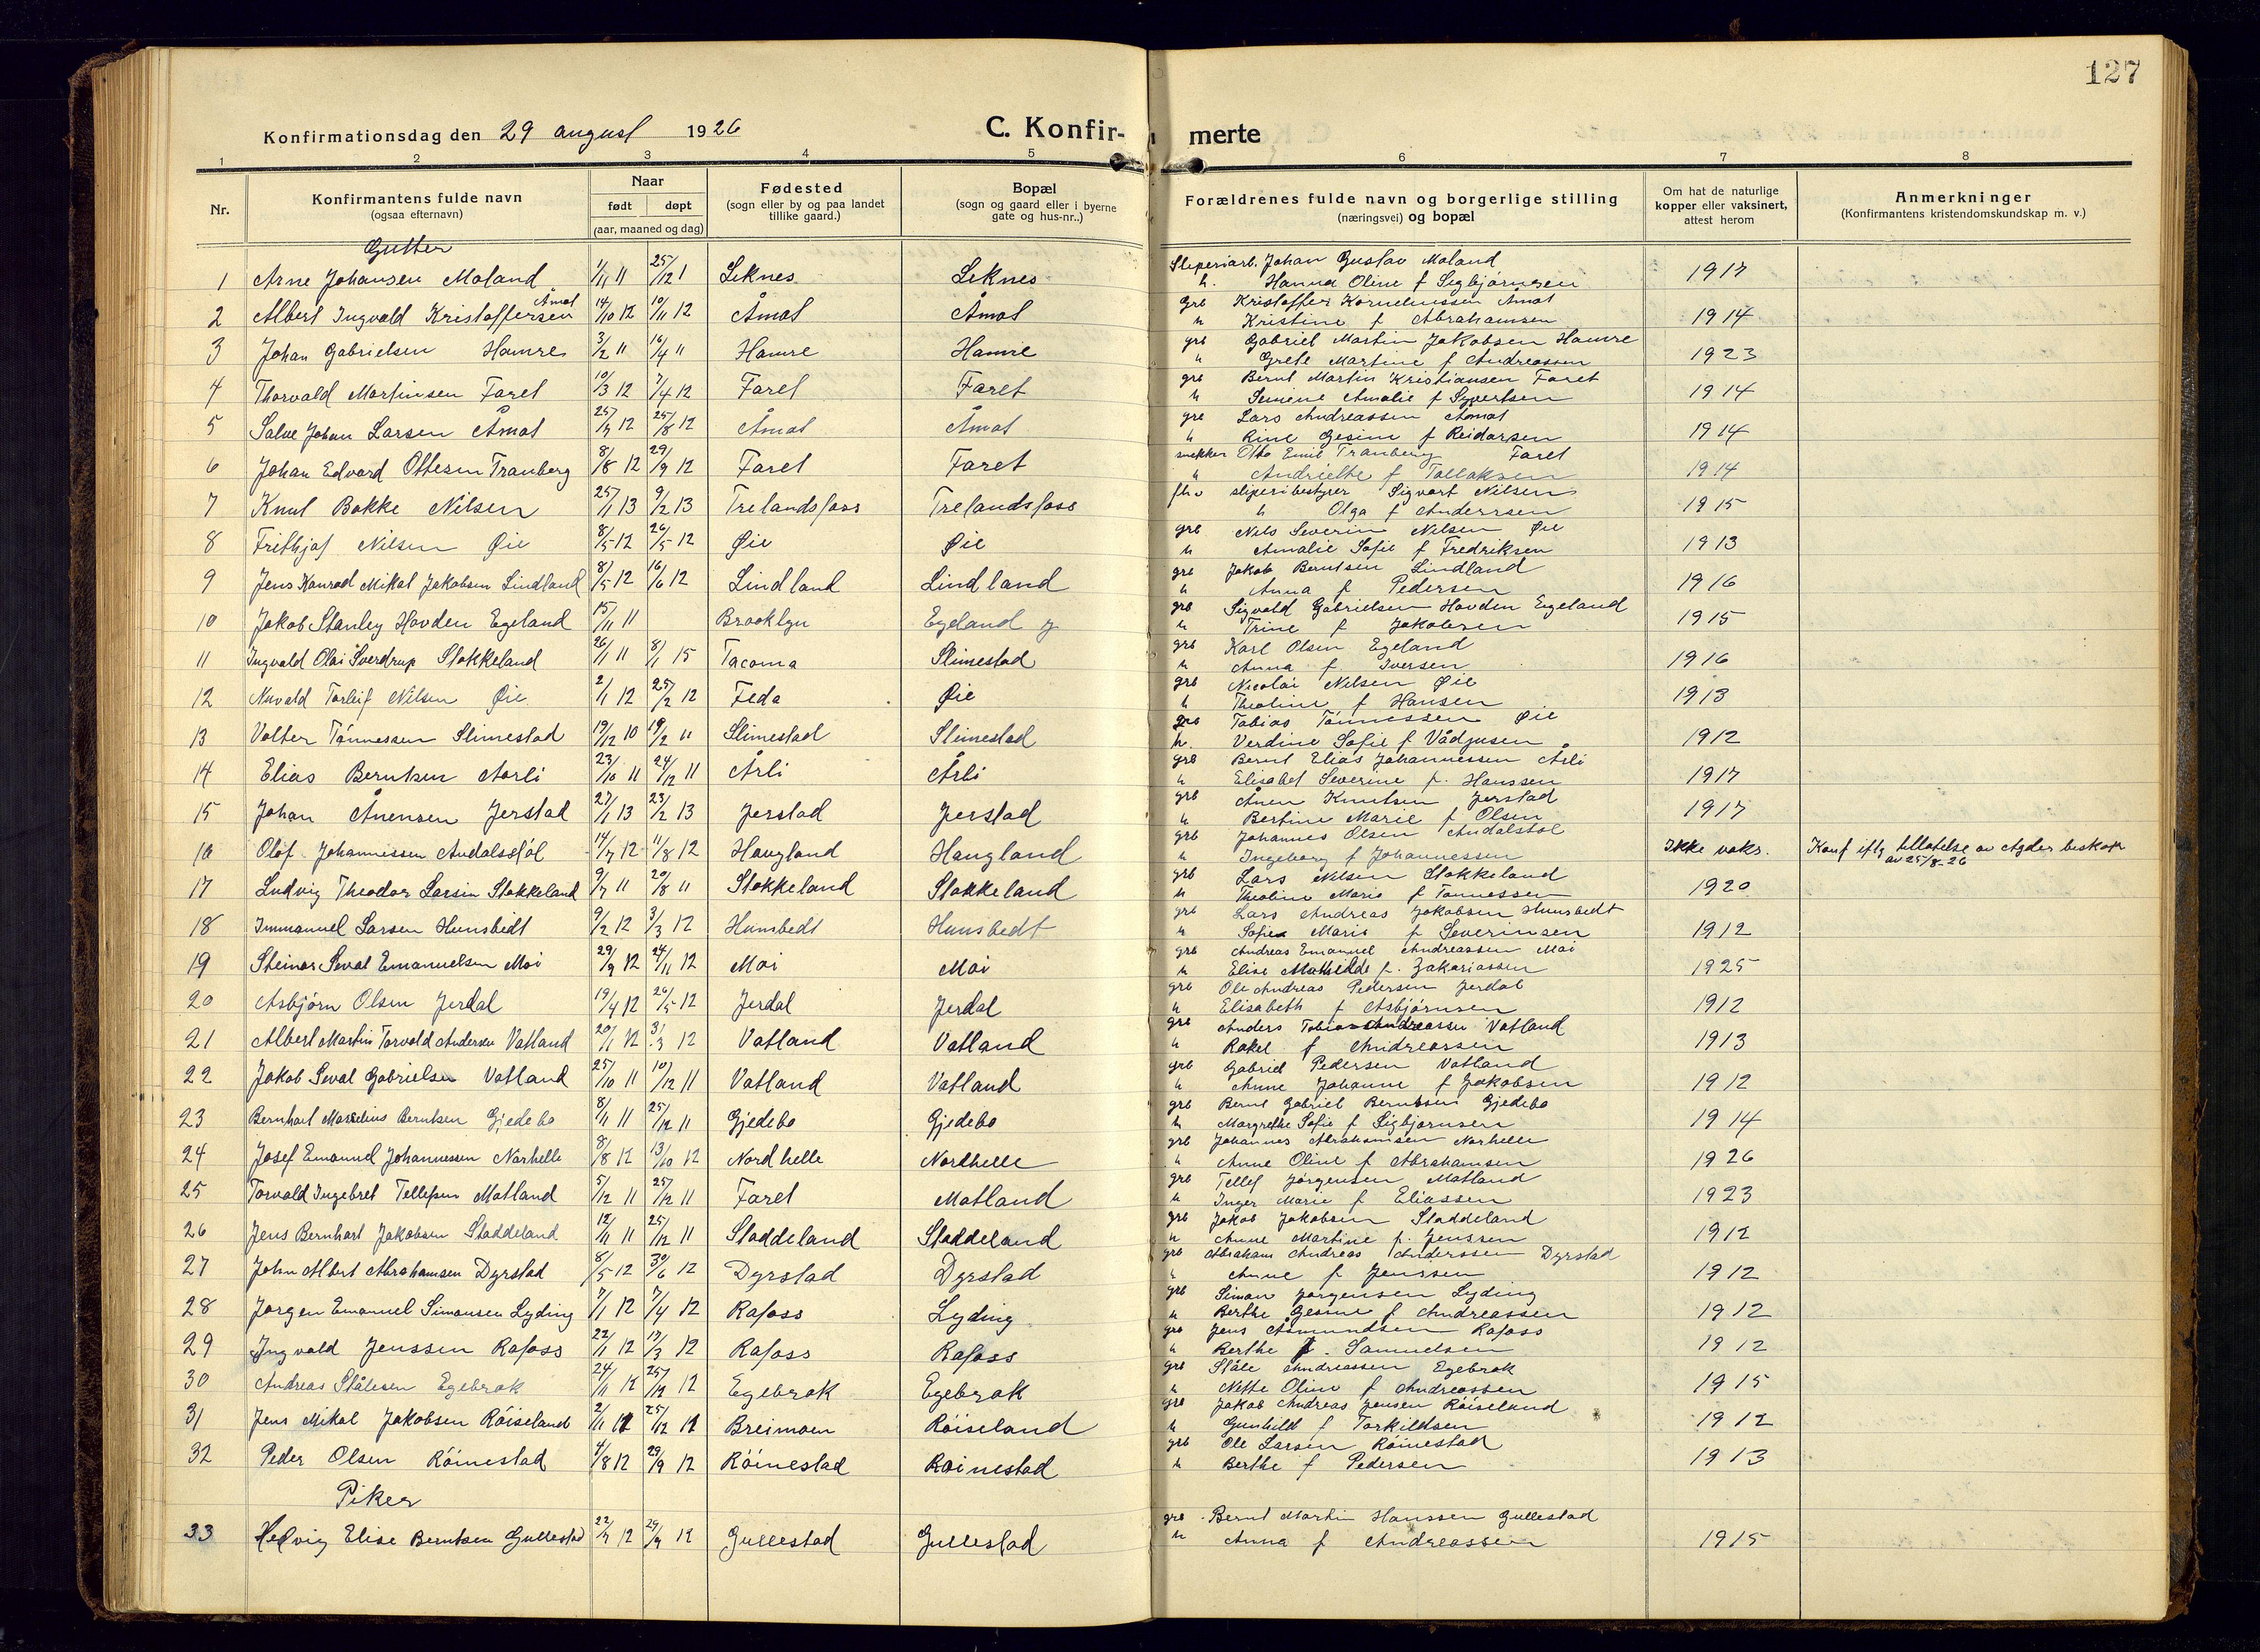 127
Konfirmationsdag den 29 august 1926
C. Konfir- merte
1 2 3 4 5 6 7 8
Nr.
Konfirmantens fulde navn
(ogsaa efternavn)
Naar
født døpt
(aar, maaned og dag)
Fødested
(sogn eller by og paa landet
tillike gaard.)
Bopæl
(sogn og gaard eller i byerne
gate og hus-nr..)
Forældrenes fulde navn og borgerlige stilling
(næringsvei) og bopæl
Om hat de naturlige
kopper eller vaksinert,
attest herom
Anmerkninger
(Konfirmantens kristendomskundskap m. v.)
Gutter
1 Arne Johansen Moland 1/11 11 25/12 1 Liknes Liknes Sliperiarb. Johan Gustav Moland 1917
h. Hanna Oline f Sigbjørnsen
2 Albert Ingvald Kristoffersen Åmot 14/10 12 10/11 12 Åmot Åmot grb Kristoffer Kornelinssen Åmot 1914
h Kristine f Abrahamsen
3 Johan Gabrielsen Hamre 3/2 11 16/4 11 Hamre Hamre grb Gabriel Martin Jakobsen Hamre 1923
h Grete Martine f Andreassen
4 Thorvald Martinsen Faret 10/3 12 7/4 12 Faret Faret grb Bernt Martin Kristiansen Faret 1914
h Semine Amalie f Syvertsen
5 Salve Johan Larsen Åmot 25/7 12 25/8 12 Åmot Åmot grb Lars Andreassen Åmot 1914
h Rine Gesine f Reidarsen
6 Johan Edvard Ottesen Tranberg 8/8 12 29/9 12 Faret Faret snekker Otto Emil Tranberg Faret 1914
h Andriette f Tollaksen
7 Knut Bakke Nilsen 25/1 13 9/2 13 Trelandsfoss Trelandsfoss fhv sliperibestyrer Sigvart Nilsen 1915
h Olga f Anderssen
8 Frithjof Nilsen Øie 8/5 12 26/5 12 Øie Øie grb Nils Severin Nilsen Øie 1913
h Amalie Sofie f Fredriksen
9 Jens Konrad Mikal Jakobsen Lindland 8/5 12 16/6 12 Lindland Lindland grb Jakob Berntsen Lindland 1916
h Anna f Pedersen
10 Jakob Stanley Hovden Egeland 15/11 11 Brooklyn Egeland grb Sigvald Gabrielsen Hovden Egeland 1915
h Trine f Jakobsen
11 Ingvald Olai Sverdrup Stokkeland 26/1 11 8/1 15 Tacoma Slimestad grb Karl Olsen Egeland 1916
h Anna f Iversen
12 Navald Torleif Nilsen Øie 2/1 12 25/2 12 Feda Øie grb Nicolai Nilsen Øie 1913
h Theoline f Hansen
13 Volter Tønnessen Slimestad 19/12 10 19/2 11 Slimestad Slimestad grb Tobias Tønnessen Øie 1912
h. Verdine Sofie f Vådjusen
14 Elias Berntsen Aarli 23/10 11 24/12 11 Årli Årli grb Bernt Elias Johannessen Årli 1917
h Elisabet Severine f. Hanssen
15 Johan Ånensen Jerstad 27/1 13 23/2 13 Jerstad Jerstad grb Ånen Knutsen Jerstad 1917
h Bertine Marie f Olsen
16 Olof Johannessen Andalsstøl 14/7 12 11/8 12 Haugland Haugland grb Johannes Olsen Andalstøl Ikke vaks. Konf iflg tillatelse av Agder biskop
h Ingeborg f Johannessen av 25/8-26
17 Ludvig Theodor Larsen Stokkeland 9/7 11 20/8 11 Stokkeland Stokkeland grb Lars Nilsen Stokkeland 1920
h Theoline Marie f Tønnessen
18 Immanuel Larsen Hunsbedt 9/2 12 3/3 12 Hunsbedt Hunsbedt grb Lars Andreas Jakobsen Hunsbedt 1912
h Sofie Marie f Severinsen
19 Steinar Seval Emanuelsen Moi 29/9 12 24/11 12 Moi Moi grb Andreas Emanuel Andreassen Moi 1925
h Elise Mathilde f. Zakariassen
20 Asbjørn Olsen Jerdal 19/4 12 26/5 12 Jerdal Jerdal grb Ole Andreas Pedersen Jerdal 1912
h Elisabeth f Asbjørnsen
21 Albert Martin Torvald Andersen Vatland 20/1 12 3/3 12 Vatland Vatland grb Anders Tobias Andreassen Vatland 1913
h Rakel f Andreassen
22 Jakob Seval Gabrielsen Vatland 25/10 11 10/12 11 Vatland Vatland grb Gabriel Pedersen Vatland 1912
h Anne Johanne f Jakobsen
23 Bernhart Marselius Berntsen Gjedebo 8/11 11 25/12 11 Gjedebo Gjedebo grb Bernt Gabriel Berntsen Gjedebo 1914
h Margrethe Sofie f Sigbjørnsen
24 Josef Emanuel Johannessen Narhelle 8/8 12 13/10 12 Nordhelle Nordhelle grb Johannes Abrahamsen Narhelle 1926
h Anne Oline f Abrahamsen
25 Torvald Ingebret Tellefsen Matland 5/12 11 25/12 11 Faret Matland grb Tellef Jørgensen Matland 1923
h Inger Marie f Eliassen
26 Jens Bernhart Jakobsen Staddeland 12/11 11 25/12 11 Staddeland Staddeland grb Jakob Jakobsen Staddeland 1912
h Anne Martine f. Jenssen
27 John Albert Abrahamsen Dyrstad 8/5 12 30/6 12 Dyrstad Dyrstad grb Abraham Andreas Anderssen Dyrstad 1912
h Anne f Jenssen
28 Jørgen Emanuel Simonsen Lyding 7/1 12 7/4 12 Rafoss Lyding grb Simon Jørgensen Lyding 1912
h Berthe Gesine f Andreassen
29 Ingvald Jenssen Rafoss 22/1 12 19/3 12 Rafoss Rafoss grb Jens Åsmundsen Rafoss 1912
h Berthe f. Samuelsen
30 Andreas Stålesen Egebrok 24/11 12 25/12 12 Egebrok Egebrok grb Ståle Andreassen Egebrok 1915
h Nette Oline f Andreassen
31 Jens Mikal Jakobsen Røiseland 2/11 11 25/12 11 Breimoen Røiseland grb Jakob Andreas Jensen Røiseland 1912
h Gunhild f Torkildsen
32 Peder Olsen Røinestad 4/8 12 29/9 12 Røinestad Røinestad grb Ole Larsen Røinestad 1913
h Berthe f Pedersen
Piker
33 Hedvig Elise Berntsen Gullestad 22/7 12 29/9 12 Gullestad Gullestad grb Bernt Martin Hanssen Gullestad 1915
h Anna f Andreassen